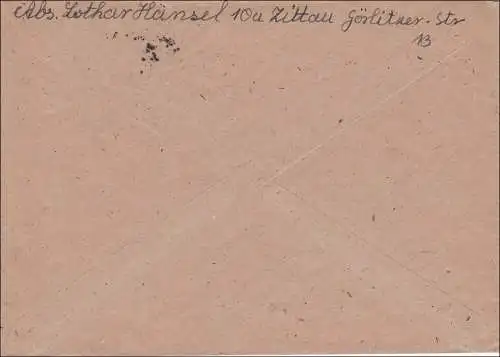 Abs. Lothar Hänsel 10a Zittau Görlitzer-Str
13